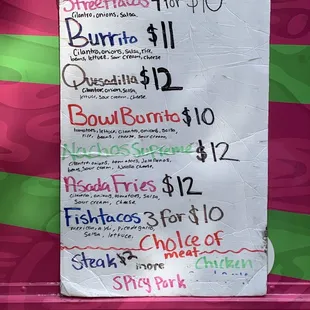 Street Tacos 4 for $10
cilantro, onions, salsa
Burrito $11
cilantro, onions, salsa, rice,
beans, lettuce, sour cream, cheese
Quesadilla $12
cilantro, onions, salsa,
lettuce, sour cream, cheese
Bowl Burrito $10
tomatoes, lettuce, cilantro, onions, salsa,
rice, beans, cheese, sour cream
Nachos Supreme $12
cilantro, onions, tomatoes, Jalapenos,
beans, sour cream, Nacho cheese
Asada Fries $12
cilantro, onions, tomatoes, salsa,
sour cream, cheese
Fish tacos 3 for $10
salsa, lettuce.
Choice of
meat
Steak $2 more Chicken
Spicy Pork